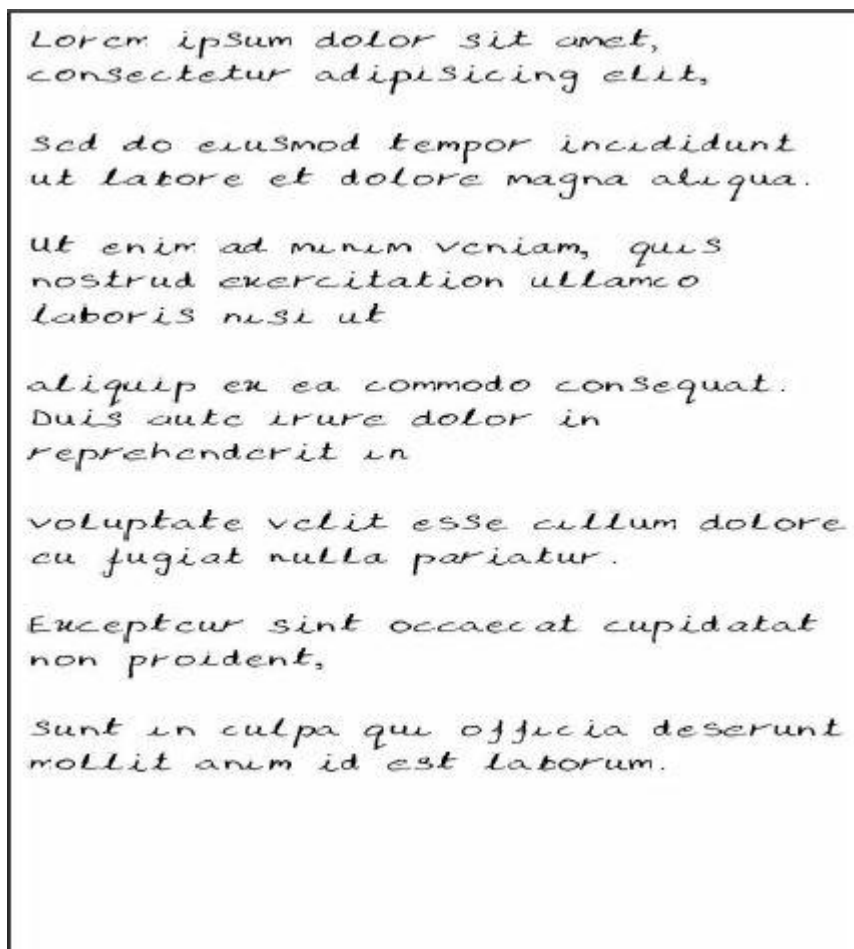 Lorem ipsum dolor sit amet,
consectetur adipisicing elit,
sed do eiusmod tempor incididunt
ut labore et dolore magna aliqua.
Ut enim ad minim veniam, quis
nostrud exercitation ullamco
laboris nisi ut
aliquip ex ea commodo consequat.
Duis aute irure dolor in
reprehenderit in
voluptate velit esse cillum dolore
eu fugiat nulla pariatur.
Excepteur sint occaecat cupidatat
non proident,
sunt in culpa qui officia deserunt
mollit anim id est laborum.